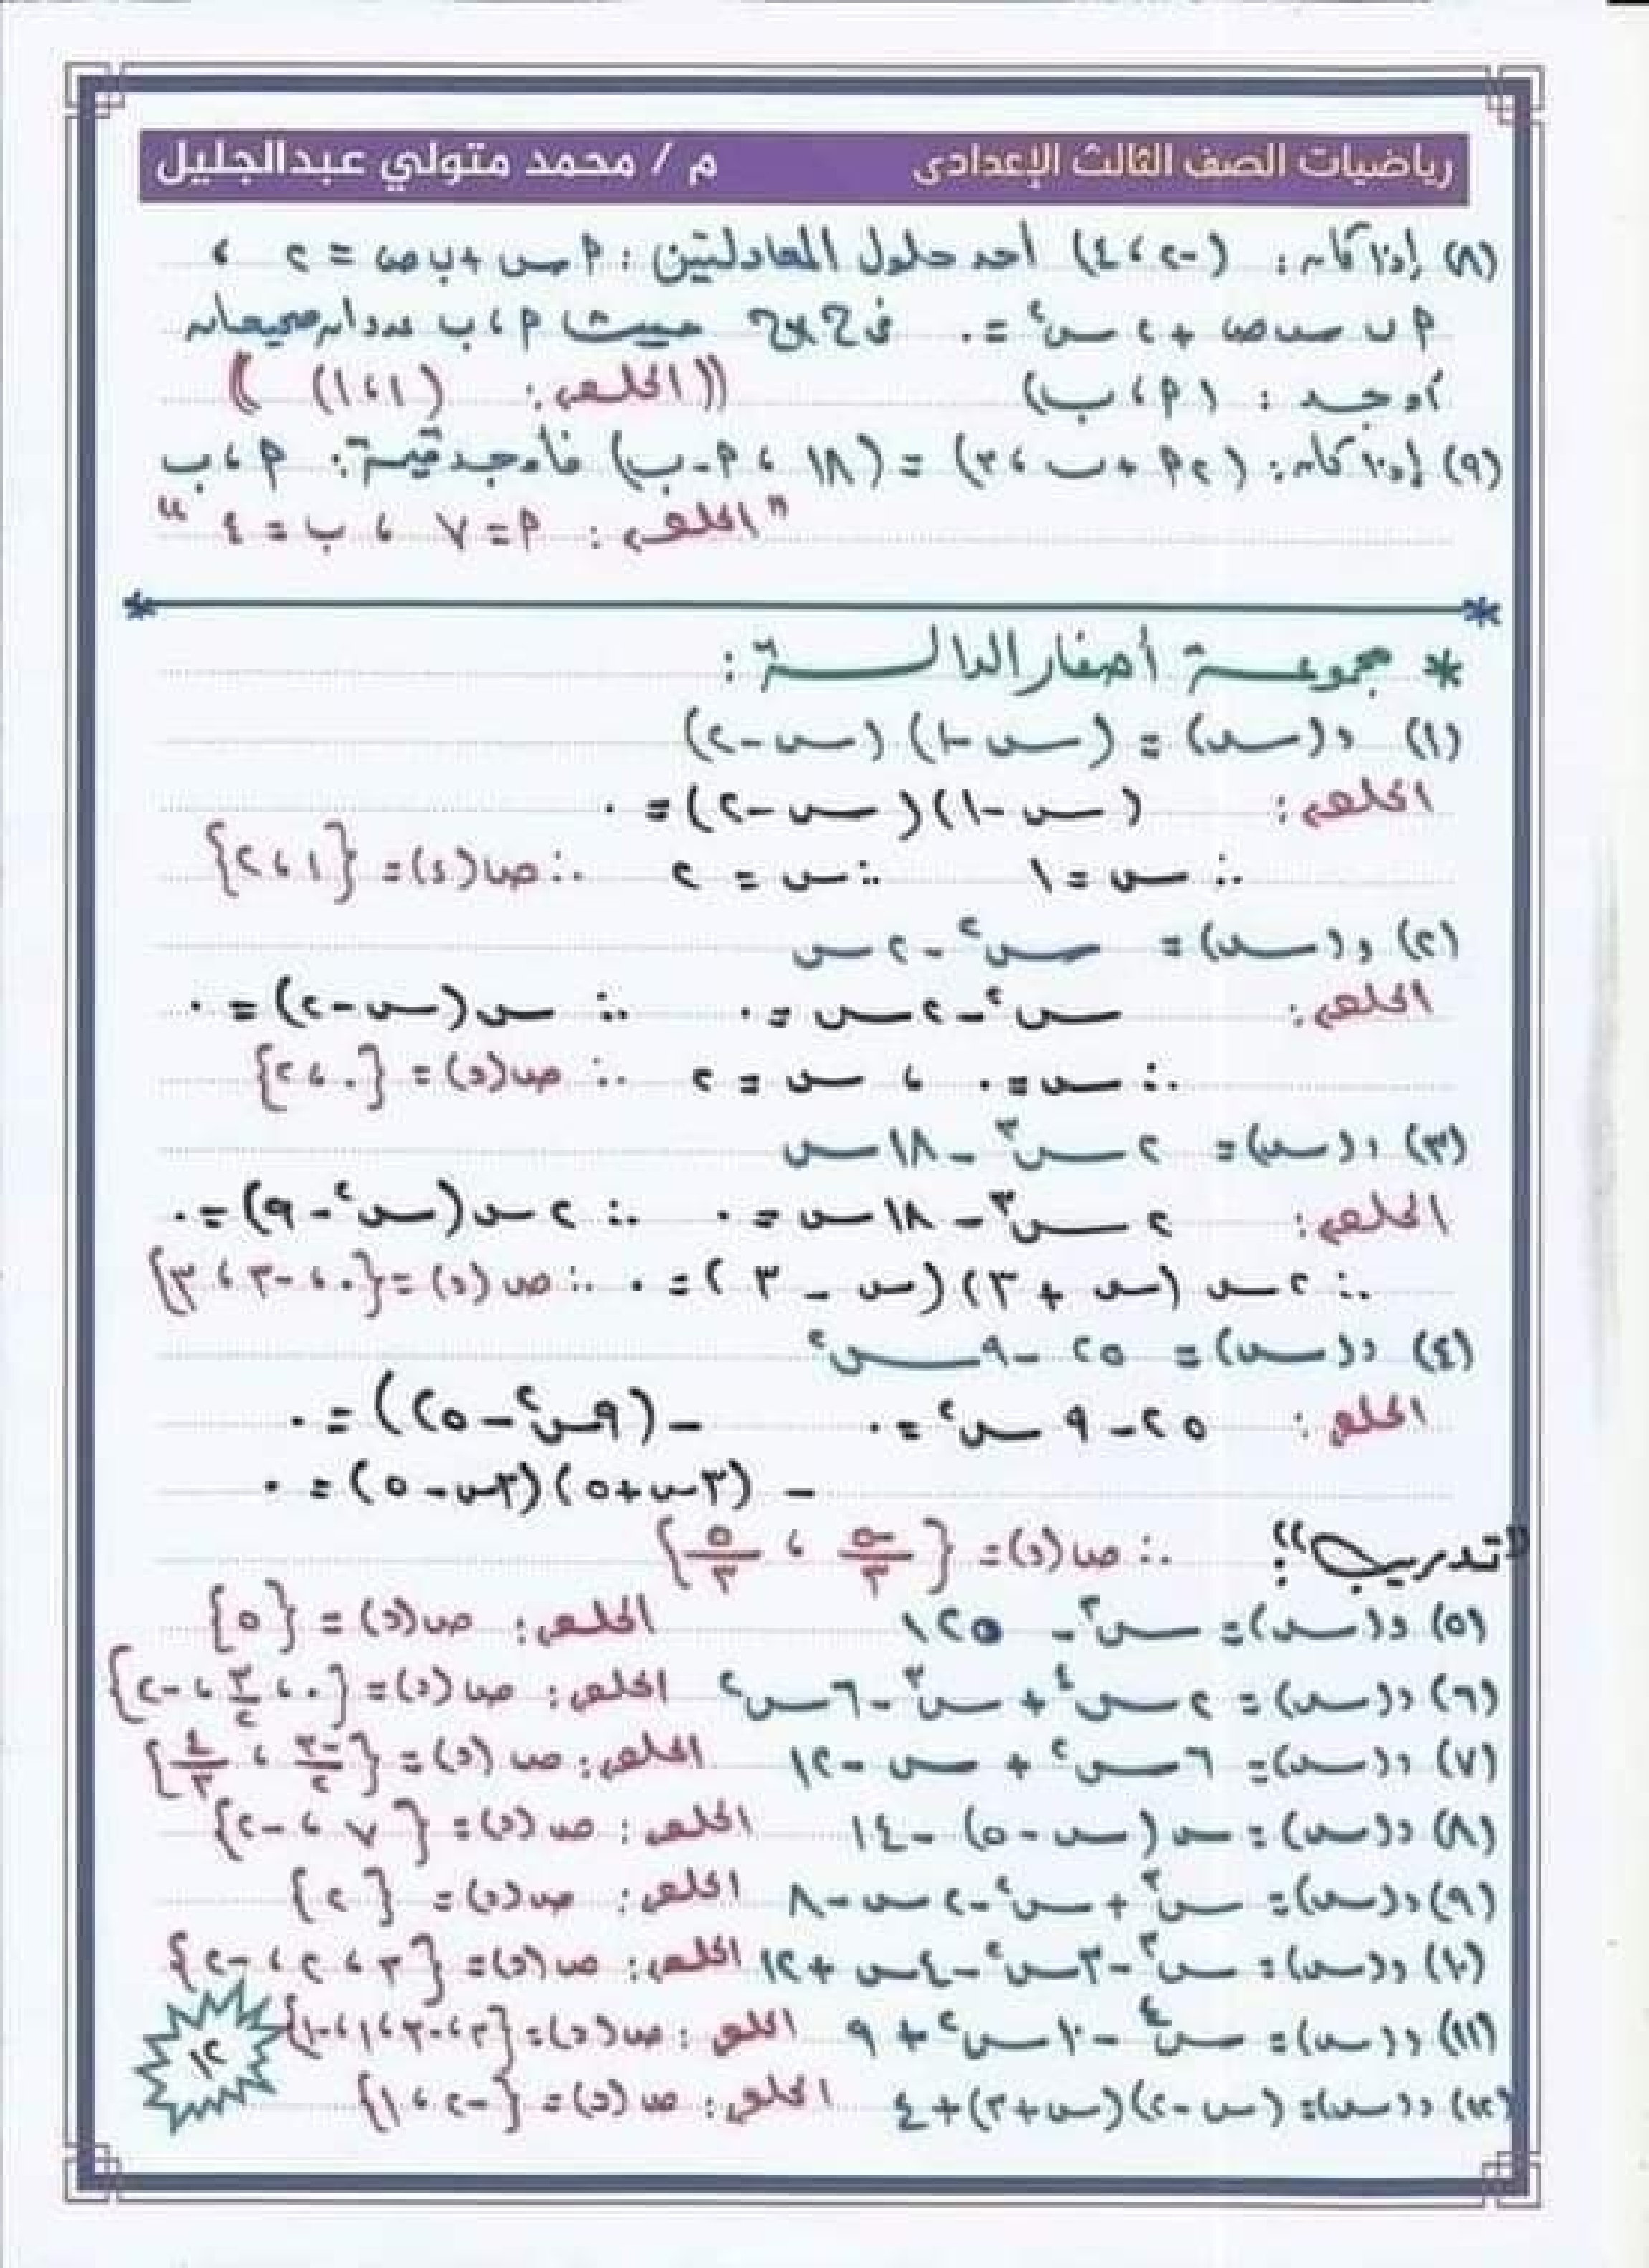 رياضيات الصف الثالث الإعدادى م / محمد متولي عبدالجليل
(٨) إذا كان : (-٢ ، ٤) أحد حلول المعادلتين : ﺍس + ب ص = ٢ ،
ﺍ ب س ص + ٢ س² = ٠ فى ح×ح حيث ﺍ ، ب عددان صحيحان
أوجد : (ﺍ ، ب) ((الحل : (١ ، ١) ))
(٩) إذا كان : (٢ﺍ + ب ، ٣) = (١٨ ، ﺍ - ب) فأوجد قيمة : ﺍ ، ب
"الحل : ﺍ = ٧ ، ب = ٤ "
* مجموعة أصفار الدالة :
(١) د(س) = (س-١) (س-٢)
الحل : (س-١)(س-٢) = ٠
∴ س = ١ ∴ س = ٢ ∴ ص(د) = {١ ، ٢}
(٢) د(س) = س² - ٢س
الحل : س² - ٢س = ٠ ∴ س(س-٢) = ٠
∴ س = ٠ ، س = ٢ ∴ ص(د) = {٠ ، ٢}
(٣) د(س) = ٢س³ - ١٨س
الحل : ٢س³ - ١٨س = ٠ ∴ ٢س(س² - ٩) = ٠
∴ ٢س (س + ٣)(س - ٣) = ٠ ∴ ص(د) = {٠ ، -٣ ، ٣}
(٤) د(س) = ٢٥ - ٩س²
الحل : ٢٥ - ٩س² = ٠ - (٩س² - ٢٥) = ٠
- (٣س+٥)(٣س-٥) = ٠
"تدريب" : ∴ ص(د) = {-٥/٣ ، ٥/٣}
(٥) د(س) = س³ - ١٢٥ الحل : ص(د) = {٥}
(٦) د(س) = ٢س⁴ + س³ - ٦س² الحل : ص(د) = {٠ ، ٣/٢ ، -٢}
(٧) د(س) = ٦س² + س - ١٢ الحل : ص(د) = {-٣/٢ ، ٤/٣}
(٨) د(س) = س(س-٥) - ١٤ الحل : ص(د) = {٧ ، -٢}
(٩) د(س) = س³ + س² - ٢س - ٨ الحل : ص(د) = {٢}
(١٠) د(س) = س³ - ٣س² - ٤س + ١٢ الحل : ص(د) = {٣ ، ٢ ، -٢}
(١١) د(س) = س⁴ - ١٠س² + ٩ الحل : ص(د) = {٣ ، -٣ ، ١ ، -١}
(١٢) د(س) = (س-٢)(س+٣) + ٤ الحل : ص(د) = {-٢ ، ١}
١٢